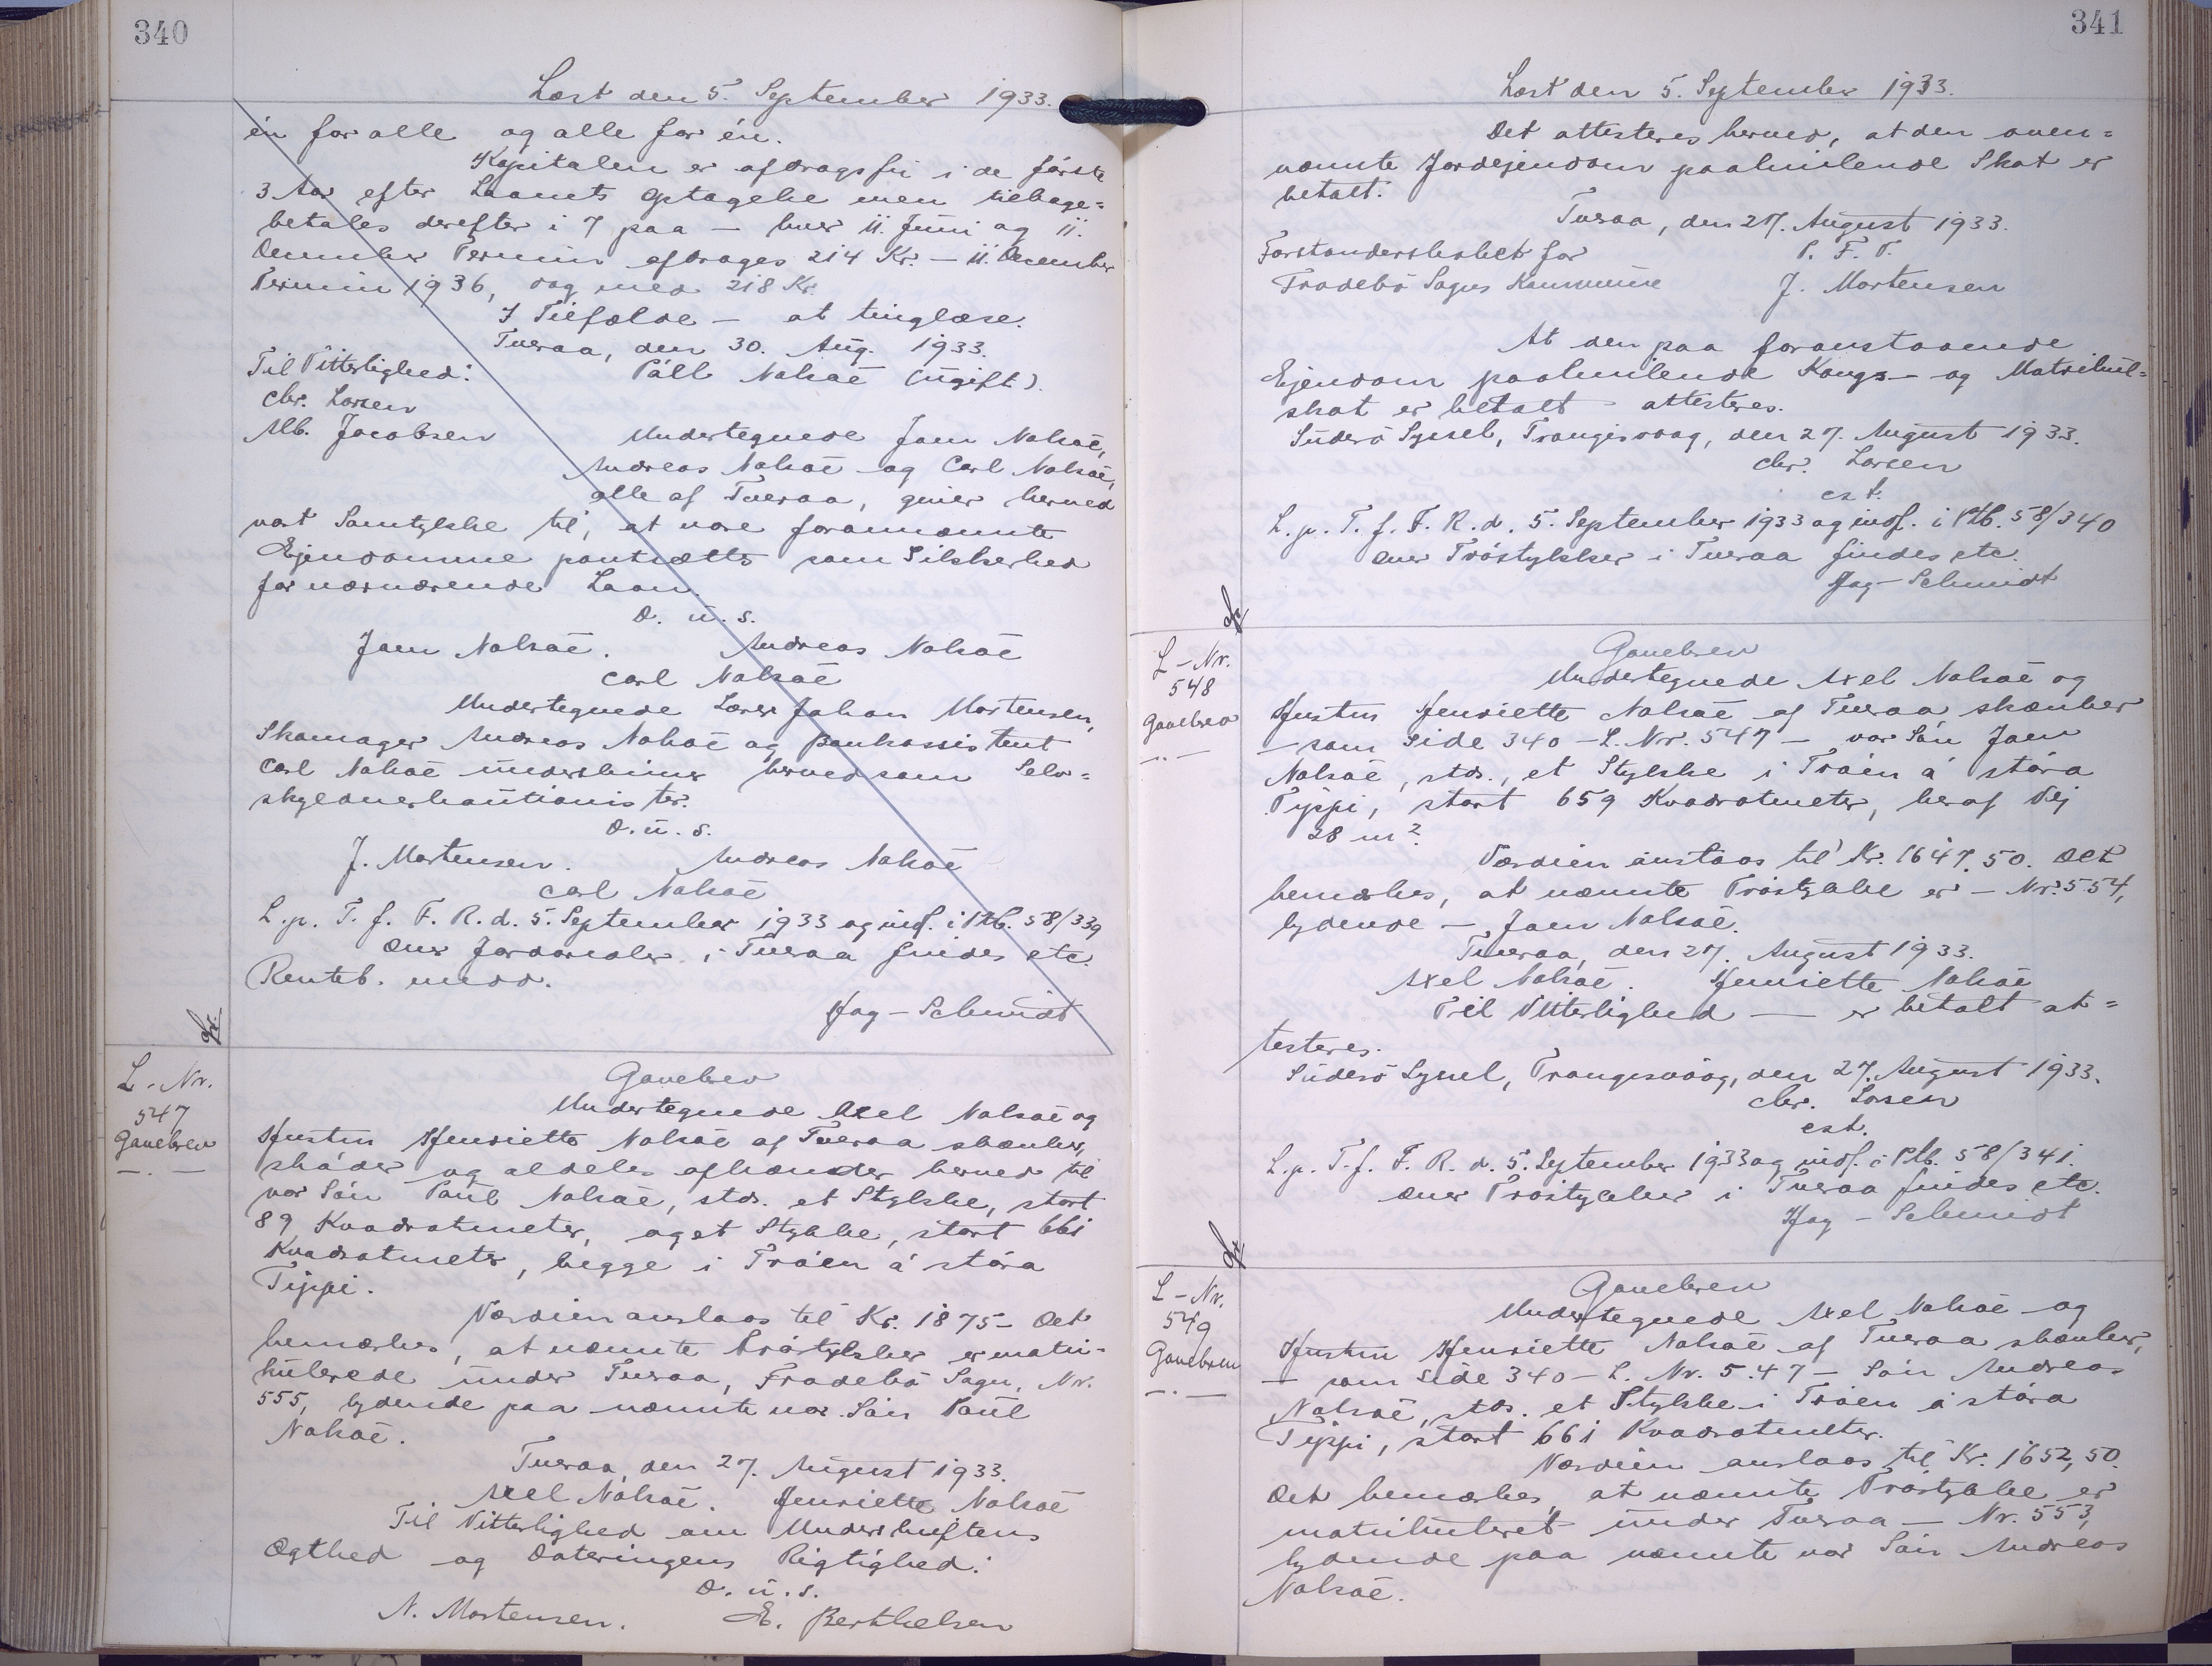 340
Læst den 5. September 1933.
én for alle og alle for én.
Kapitalen er afdragsfri i de første
3 Aar efter Laanets Optagelse men tilbage=
betales derefter i 7 paa — hver 11. Juni og 11.
December Termin afdrages 214 Kr. — 11. December
Termin 1936, dog med 218 Kr.
I Tilfælde — at tinglæse.
Tveraa, den 30. Aug. 1933.
Til Vitterlighed: Páll Nolsøe (ugift).
Chr. Larsen
Alb. Jacobsen
Undertegnede Joen Nolsøe,
Andreas Nolsøe og Carl Nolsøe,
alle af Tveraa, giver herved
vort Samtykke til, at vore forannævnte
Ejendomme pantsættes som Sikkerhed
for nærværende Laan.
D. u. s.
Joen Nolsøe. Andreas Nolsøe
Carl Nolsøe
Undertegnede Lærer Johan Mortensen,
Skomager Andreas Nolsøe og Bankassistent
Carl Nolsøe underskriver herved som Selv=
skyldnerkautionister.
D. u. s.
J. Mortensen. Andreas Nolsøe
Carl Nolsøe
L. p. T. f. F. R. d. 5. September 1933 og indf. i Ptb. 58/339
Over Jordarealer i Tveraa findes etc.
Renteb. medd.
Hag-Schmidt
L-Nr.
547
Gavebrev
Gavebrev
Undertegnede Axel Nolsøe og
Hustru Henriette Nolsøe af Tveraa skænker,
skøder og aldeles afhænder herved til
vor Søn Poul Nolsøe, stds. et Stykke, stort
89 Kvadratmeter, oget Stykke, stort 661
Kvadratmeter, begge i Trøen á stóra
Tippi.
Værdien anslaas til Kr. 1875- Det
bemærkes, at nævnte Trøstykker er matri-
kulerede under Tveraa, Frodebø Sogn, Nr.
555, lydende paa nævnte vor Søn Poul
Nolsøe.
Tveraa, den 27. August 1933.
Axel Nolsøe. Henriette Nolsøe
Til Vitterlighed om Underskriftens
Ægthed og Dateringens Rigtighed:
D. u. s.
N. Mortensen. E. Berthelsen
341
Læst den 5. September 1933.
Det attesteres herved, at den oven=
nævnte Jordejendom paahvilende Skat er
betalt.
Tveraa, den 27. August 1933.
Forstanderskabet for P. F. V.
Frodebø Sogns Kommune J. Mortensen
At den paa foranstaaende
Ejendom paahvilende Konge- og Matrikul=
skat er betalt attesteres.
Suderø Syssel, Trangisvaag, den 27. August 1933.
Chr. Larsen
cst.
L. p. T. f. F. R. d. 5. September 1933 og indf. i Ptb. 58/340
Over Trøstykker i Tveraa findes etc.
Hag-Schmidt
L-Nr.
548
Gavebrev
Gavebrev
Undertegnede Axel Nolsøe og
Hustru Henriette Nolsøe af Tveraa skænker
— som Side 340 - L. Nr. 547 — vor Søn Joen
Nolsøe, stds., et Stykke i Trøen á stóra
Tippi, stort 659 Kvadratmeter, heraf Vej
28 m².
Værdien anslaas til Kr. 1647,50. Det
bemærkes, at nævnte Trøstykke er — Nr. 554,
lydende — Joen Nolsøe.
Tveraa, den 27. August 1933.
Axel Nolsøe. Henriette Nolsøe
Til Vitterlighed — er betalt at=
testeres.
Suderø Syssel, Trangisvaag, den 27. August 1933.
Chr. Larsen
cst.
L. p. T. f. F. R. d. 5. September 1933 og indf. i Ptb. 58/341.
Over Trøstykker i Tveraa findes etc.
Hag-Schmidt
L-Nr.
549
Gavebrev
Gavebrev
Undertegnede Axel Nolsøe og
Hustru Henriette Nolsøe af Tveraa skænker,
— som Side 340 - L. Nr. 547 — Søn Andreas
Nolsøe, stds. et Stykke i Trøen á stóra
Tippi, stort 661 Kvadratmeter.
Værdien anslaas til Kr. 1652,50.
Det bemærkes, at nævnte Trøstykke er
matrikuleret under Tveraa — Nr. 553,
lydende paa nævnte vor Søn Andreas
Nolsøe.